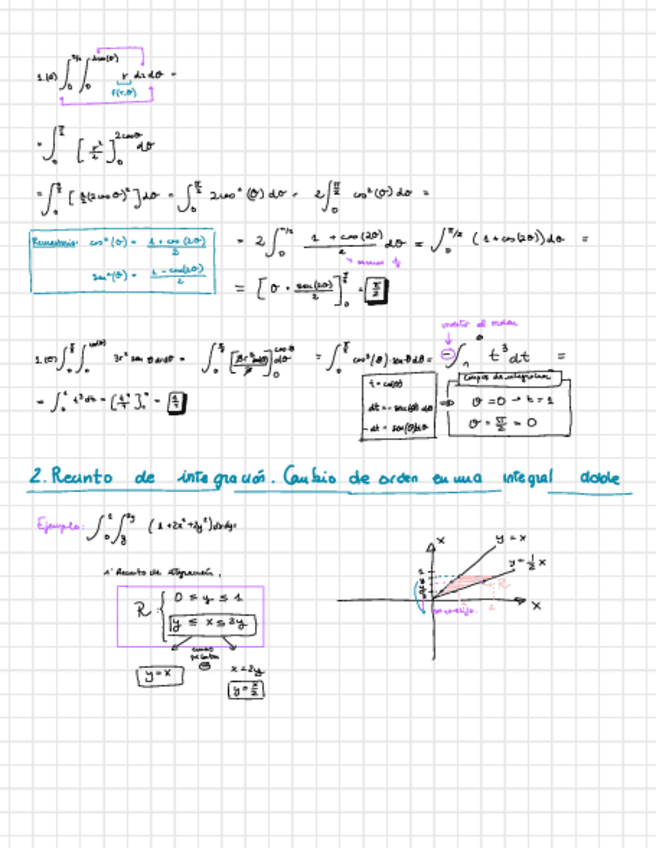 1.(d) ∫₀^{π/2} ∫₀^{2cos(θ)} r dr dθ =
f(r,θ)
= ∫₀^{π/2} [r²/2]₀^{2cosθ} dθ
= ∫₀^{π/2} [½(2cosθ)²] dθ = ∫₀^{π/2} 2cos²(θ) dθ = 2∫₀^{π/2} cos²(θ) dθ =
cos²(θ) = (1 + cos(2θ))/2
sen²(θ) = (1 - cos(2θ))/2
= 2∫₀^{π/2} (1 + cos(2θ))/2 dθ = ∫₀^{π/2} (1 + cos(2θ)) dθ =
= [θ + sen(2θ)/2]₀^{π/2} = π/2
∫₀^{π/2} ∫₀^{cos(θ)} 3r² sen θ dr dθ = ∫₀^{π/2} dθ = ∫₀^{π/2} cos³(θ)·senθ dθ = -∫₁⁰ t³ dt =
t = cos(θ)
dt = -sen(θ) dθ
-dt = sen(θ) dθ
⇒
θ = 0 → t = 1
θ = π/2 = 0
= ∫₀¹ t³ dt = [t⁴/4]₀¹ = 1/4
2. Recinto de integración. Cambio de orden en una integral doble
Ejemplo: ∫₀¹ ∫_y^{2y} (1+2x²+2y²) dx dy
1º Recinto de integración
R: { 0 ≤ y ≤ 1
y ≤ x ≤ 2y
y = x
x = 2y
y = x/2
x
y = x
y = ½x
R
1
2
x